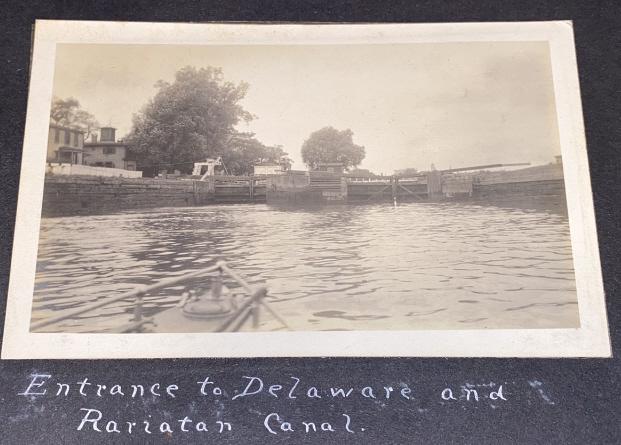 Entrance to Delaware and
Rariatan Canal.